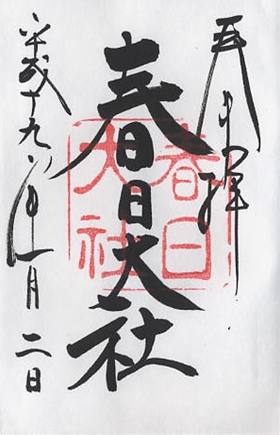 奉拝
春日大社
春日
大社
平成十九年一月二日